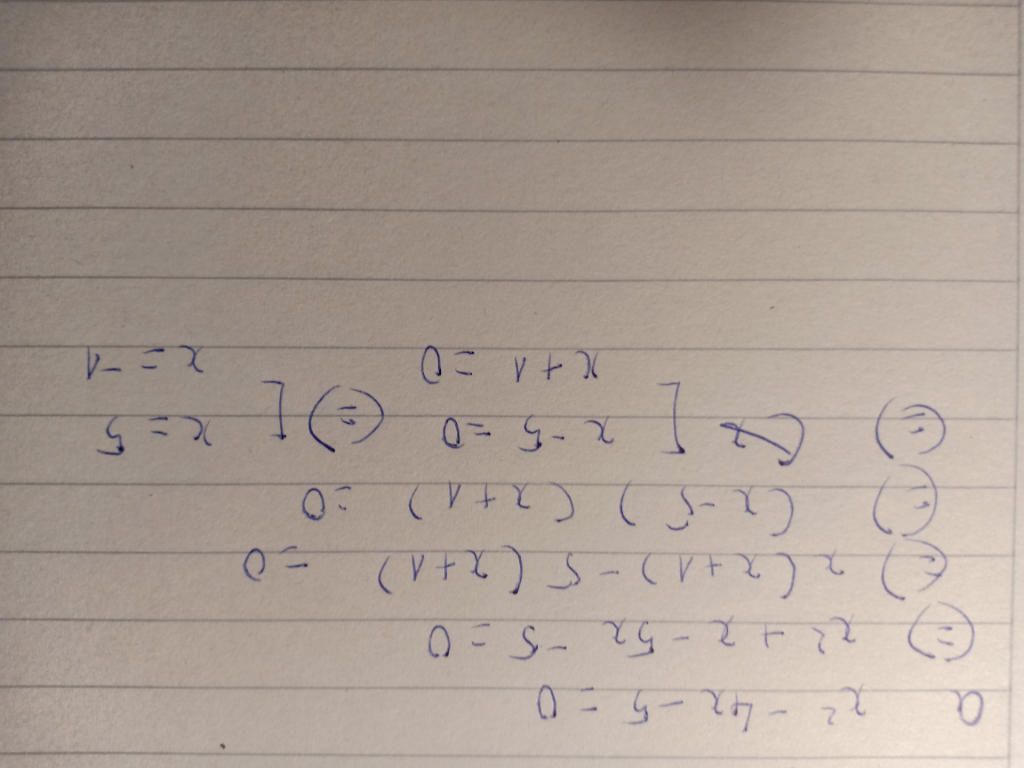 a x² - 4x - 5 = 0
(=) x² + x - 5x - 5 = 0
(=) x(x+1) - 5(x+1) = 0
(=) (x-5) (x+1) = 0
(=) [ x - 5 = 0 (=) [ x = 5
x + 1 = 0 x = -1